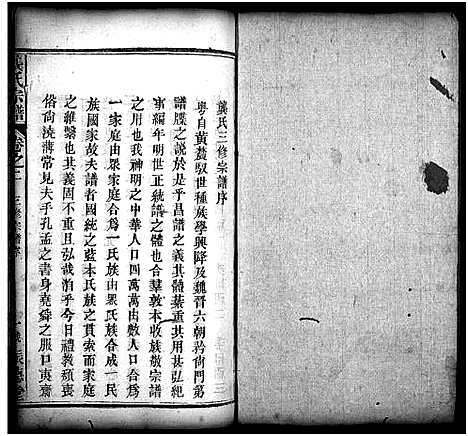 龔氏三修宗譜序
粤自黃農馭世種族學興降及魏晉六朝矜尚門第
譜牒之說於是乎昌譜之義其體綦重其用甚弘紀
事編年明世正統譜之體也合羣敦本收族敬宗譜
之用也我神明之中華人口四萬萬由數人口合爲
一家庭由眾家庭合爲一氏族由眾氏族合成一民
族國家故夫譜者國統之藍本氏族之貫索而家庭
之維繫也其義固不重且弘哉洎乎今日禮教頹喪
俗尚澆薄常見夫手孔孟之書身堯舜之服口夷齋
龔氏宗譜
卷之二
三修宗譜序
一